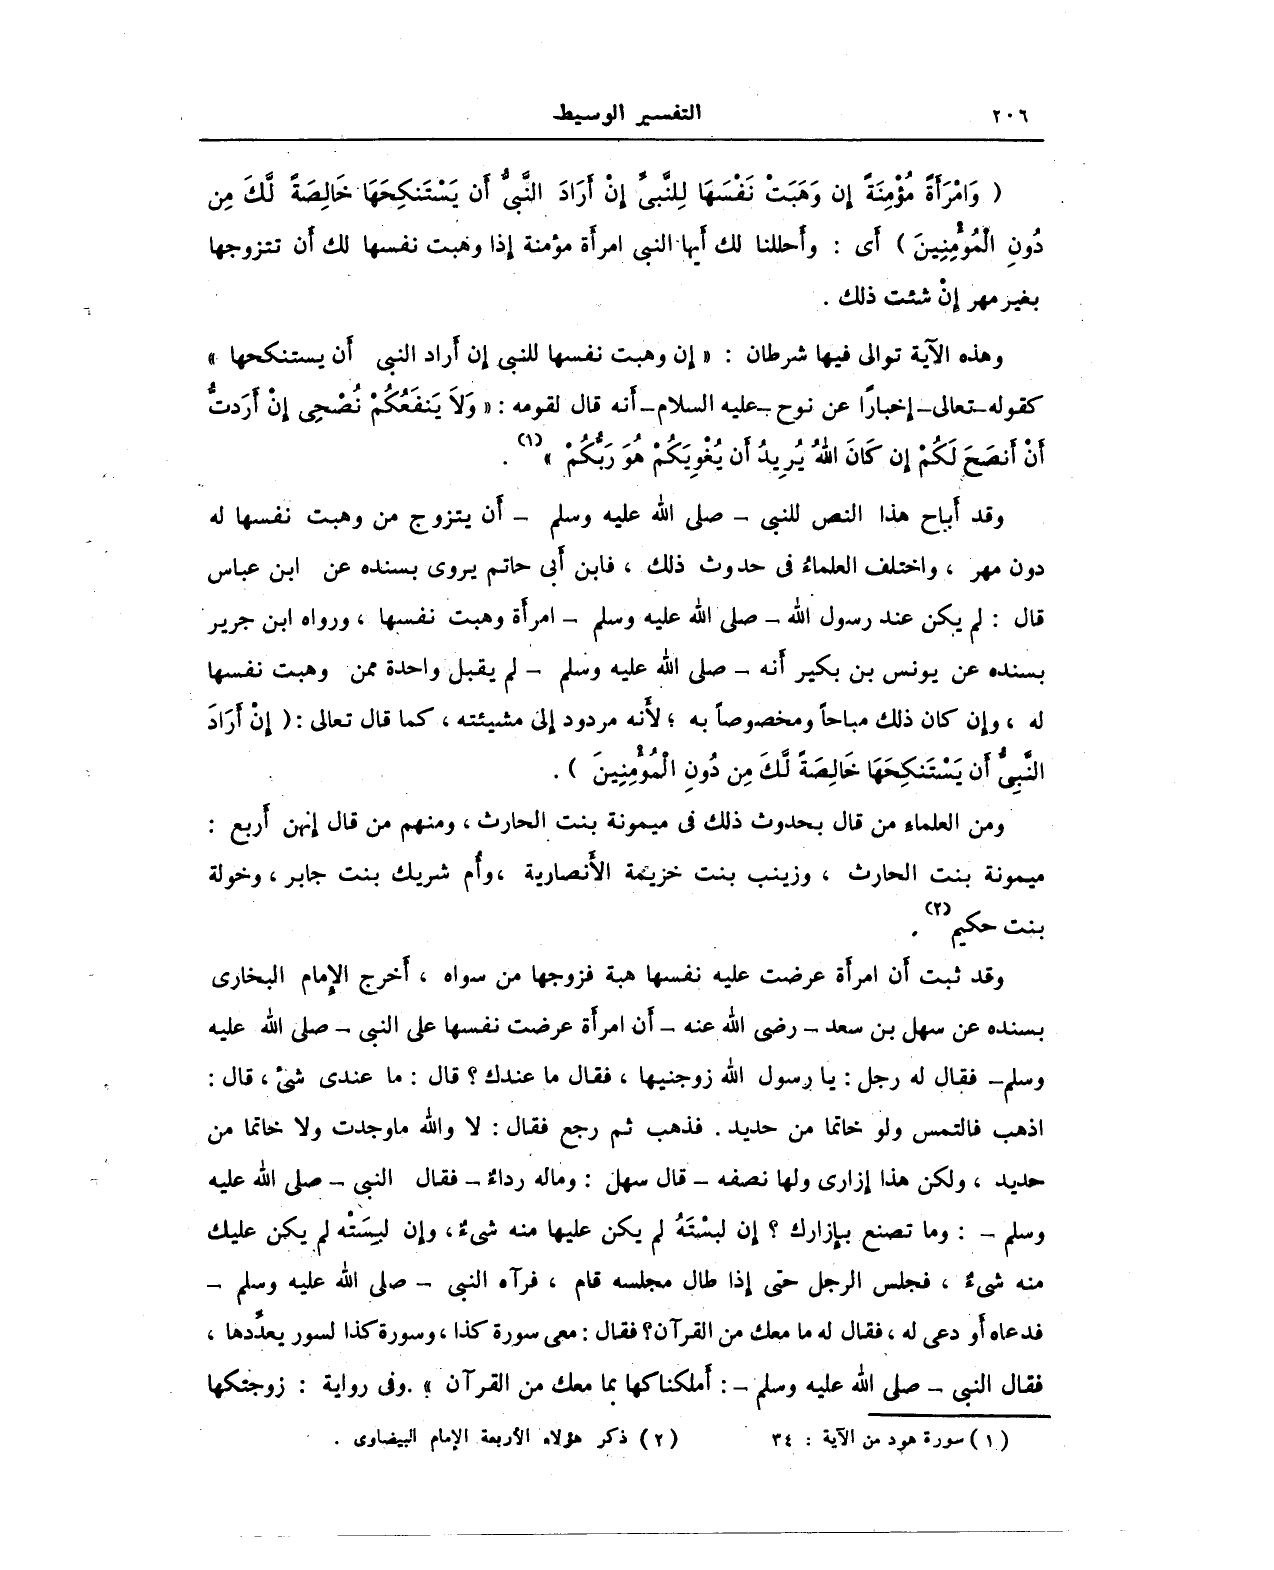 ٢٠٦ التفسير الوسيط
( وَامْرَأَةً مُؤْمِنَةً إِن وَهَبَتْ نَفْسَهَا لِلنَّبِيِّ إِنْ أَرَادَ النَّبِيُّ أَن يَسْتَنكِحَهَا خَالِصَةً لَّكَ مِن
دُونِ الْمُؤْمِنِينَ ) أَى : وأَحللنا لك أَيها النبى امرأَة مؤمنة إِذا وهبت نفسها لك أَن تتزوجها
بغير مهر إِنْ شئت ذلك .
وهذه الآية توالى فيها شرطان : « إِن وهبت نفسها للنبى إِن أَراد النبى أَن يستنكحها »
كقوله_تعالى_إِخبارًا عن نوح_عليه السلام_أَنه قال لقومه : « وَلَا يَنفَعُكُمْ نُصْحِى إِنْ أَرَدتُّ
أَنْ أَنصَحَ لَكُمْ إِن كَانَ اللهُ يُرِيدُ أَن يُغْوِيَكُمْ هُوَ رَبُّكُمْ »(١) .
وقد أَباح هذا النص للنبى _ صلى الله عليه وسلم _ أَن يتزوج من وهبت نفسها له
دون مهر ، واختلف العلماءُ فى حدوث ذلك ، فابن أَبى حاتم يروى بسنده عن ابن عباس
قال : لم يكن عند رسول الله _ صلى الله عليه وسلم _ امرأَة وهبت نفسها ، ورواه ابن جرير
بسنده عن يونس بن بكير أَنه _ صلى الله عليه وسلم _ لم يقبل واحدة ممن وهبت نفسها
له ، وإِن كان ذلك مباحاً ومخصوصاً به ؛ لأَنه مردود إِلى مشيئته ، كما قال تعالى :( إِنْ أَرَادَ
النَّبِيُّ أَن يَسْتَنكِحَهَا خَالِصَةً لَّكَ مِن دُونِ الْمُؤْمِنِينَ ) .
ومن العلماءِ من قال بحدوث ذلك فى ميمونة بنت الحارث ، ومنهم من قال إِنهن أَربع :
ميمونة بنت الحارث ، وزينب بنت خزيمة الأَنصارية ،وأُم شريك بنت جابر ، وخولة
بنت حكيم(٢) .
وقد ثبت أَن امرأَة عرضت عليه نفسها هبة فزوجها من سواه ، أَخرج الإِمام البخارى
بسنده عن سهل بن سعد _ رضى الله عنه _ أَن امرأَة عرضت نفسها على النبى _ صلى الله عليه
وسلم_ فقال له رجل : يا رسول الله زوجنيها ، فقال ما عندك ؟ قال : ما عندى شىْء ، قال :
اذهب فالتمس ولو خاتما من حديد . فذهب ثم رجع فقال : لا والله ماوجدت ولا خاتما من
حديد ، ولكن هذا إِزارى ولها نصفه _ قال سهل : وماله رداءٌ _ فقال النبى _ صلى الله عليه
وسلم _ : وما تصنع بإِزارك ؟ إِن لبسْتَهُ لم يكن عليها منه شىءٌ ، وإِن لبِسَتْه لم يكن عليك
منه شىءٌ ، فجلس الرجل حتى إِذا طال مجلسه قام ، فرآه النبى _ صلى الله عليه وسلم _
فدعاه أَو دعى له ، فقال له ما معك من القرآن؟ فقال : معى سورة كذا ، وسورة كذا لسور يعدِّدها ،
فقال النبى _ صلى الله عليه وسلم _ : أَملكناكها بما معك من القرآن » .وفى رواية : زوجتكها
(١) سورة هود من الآية : ٣٤ (٢) ذكر هؤلاء الأربعة الإمام البيضاوى .